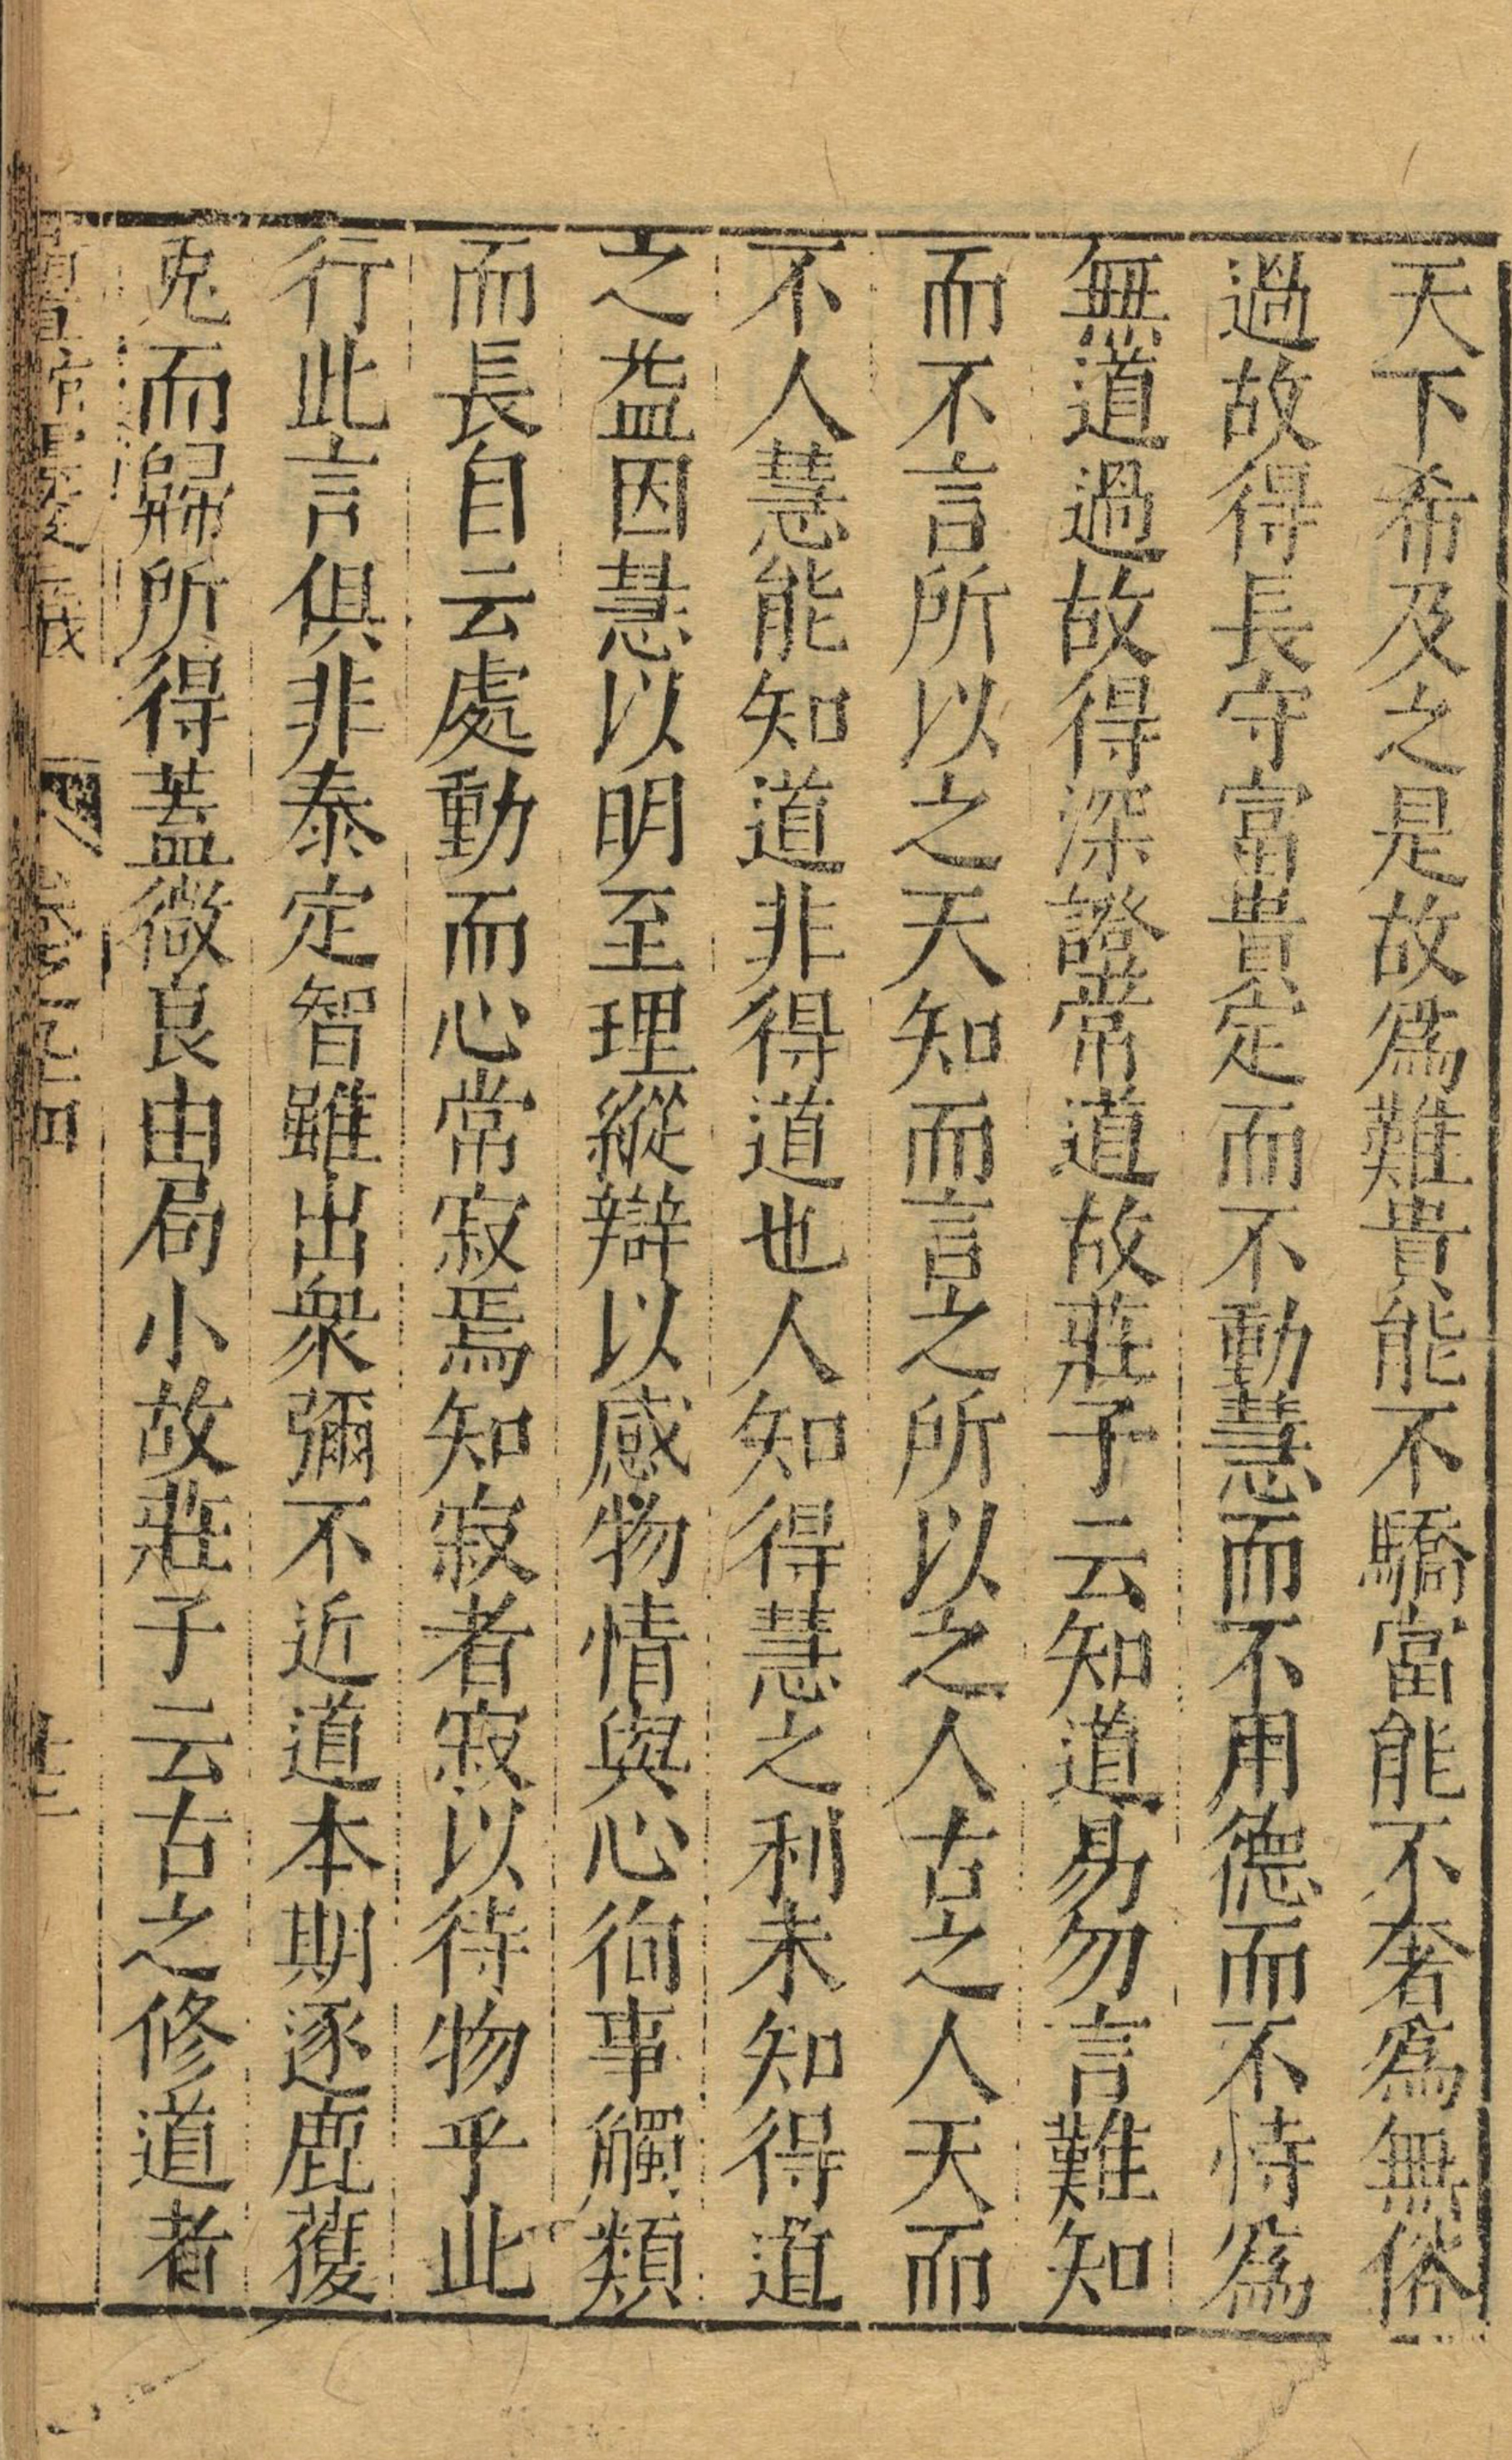 天下希及之是故爲難貴能不驕富能不奢爲無俗
過故得長守富貴定而不動慧而不用德而不恃爲
無道過故得深證常道故莊子云知道易勿言難知
而不言所以之天知而言之所以之人古之人天而
不人慧能知道非得道也人知得慧之利未知得道
之益因慧以明至理縱辯以感物情與心徇事觸類
而長自云處動而心常寂焉知寂者寂以待物乎此
行此言俱非泰定智雖出衆彌不近道本期逐鹿獲
兎而歸所得蓋微良由局小故莊子云古之修道者